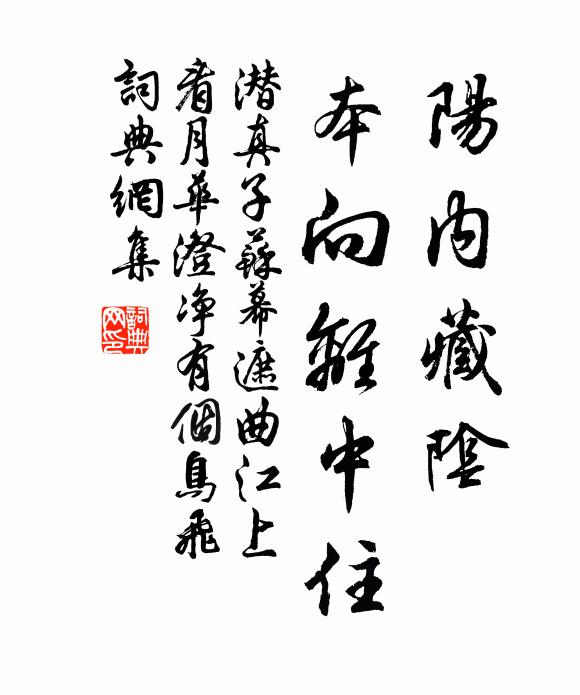 陽内藏陰
本向離中住
潜真子蘇幕遮曲江上
看月華澄净有個鳥飛
詞典網集
詞典网印